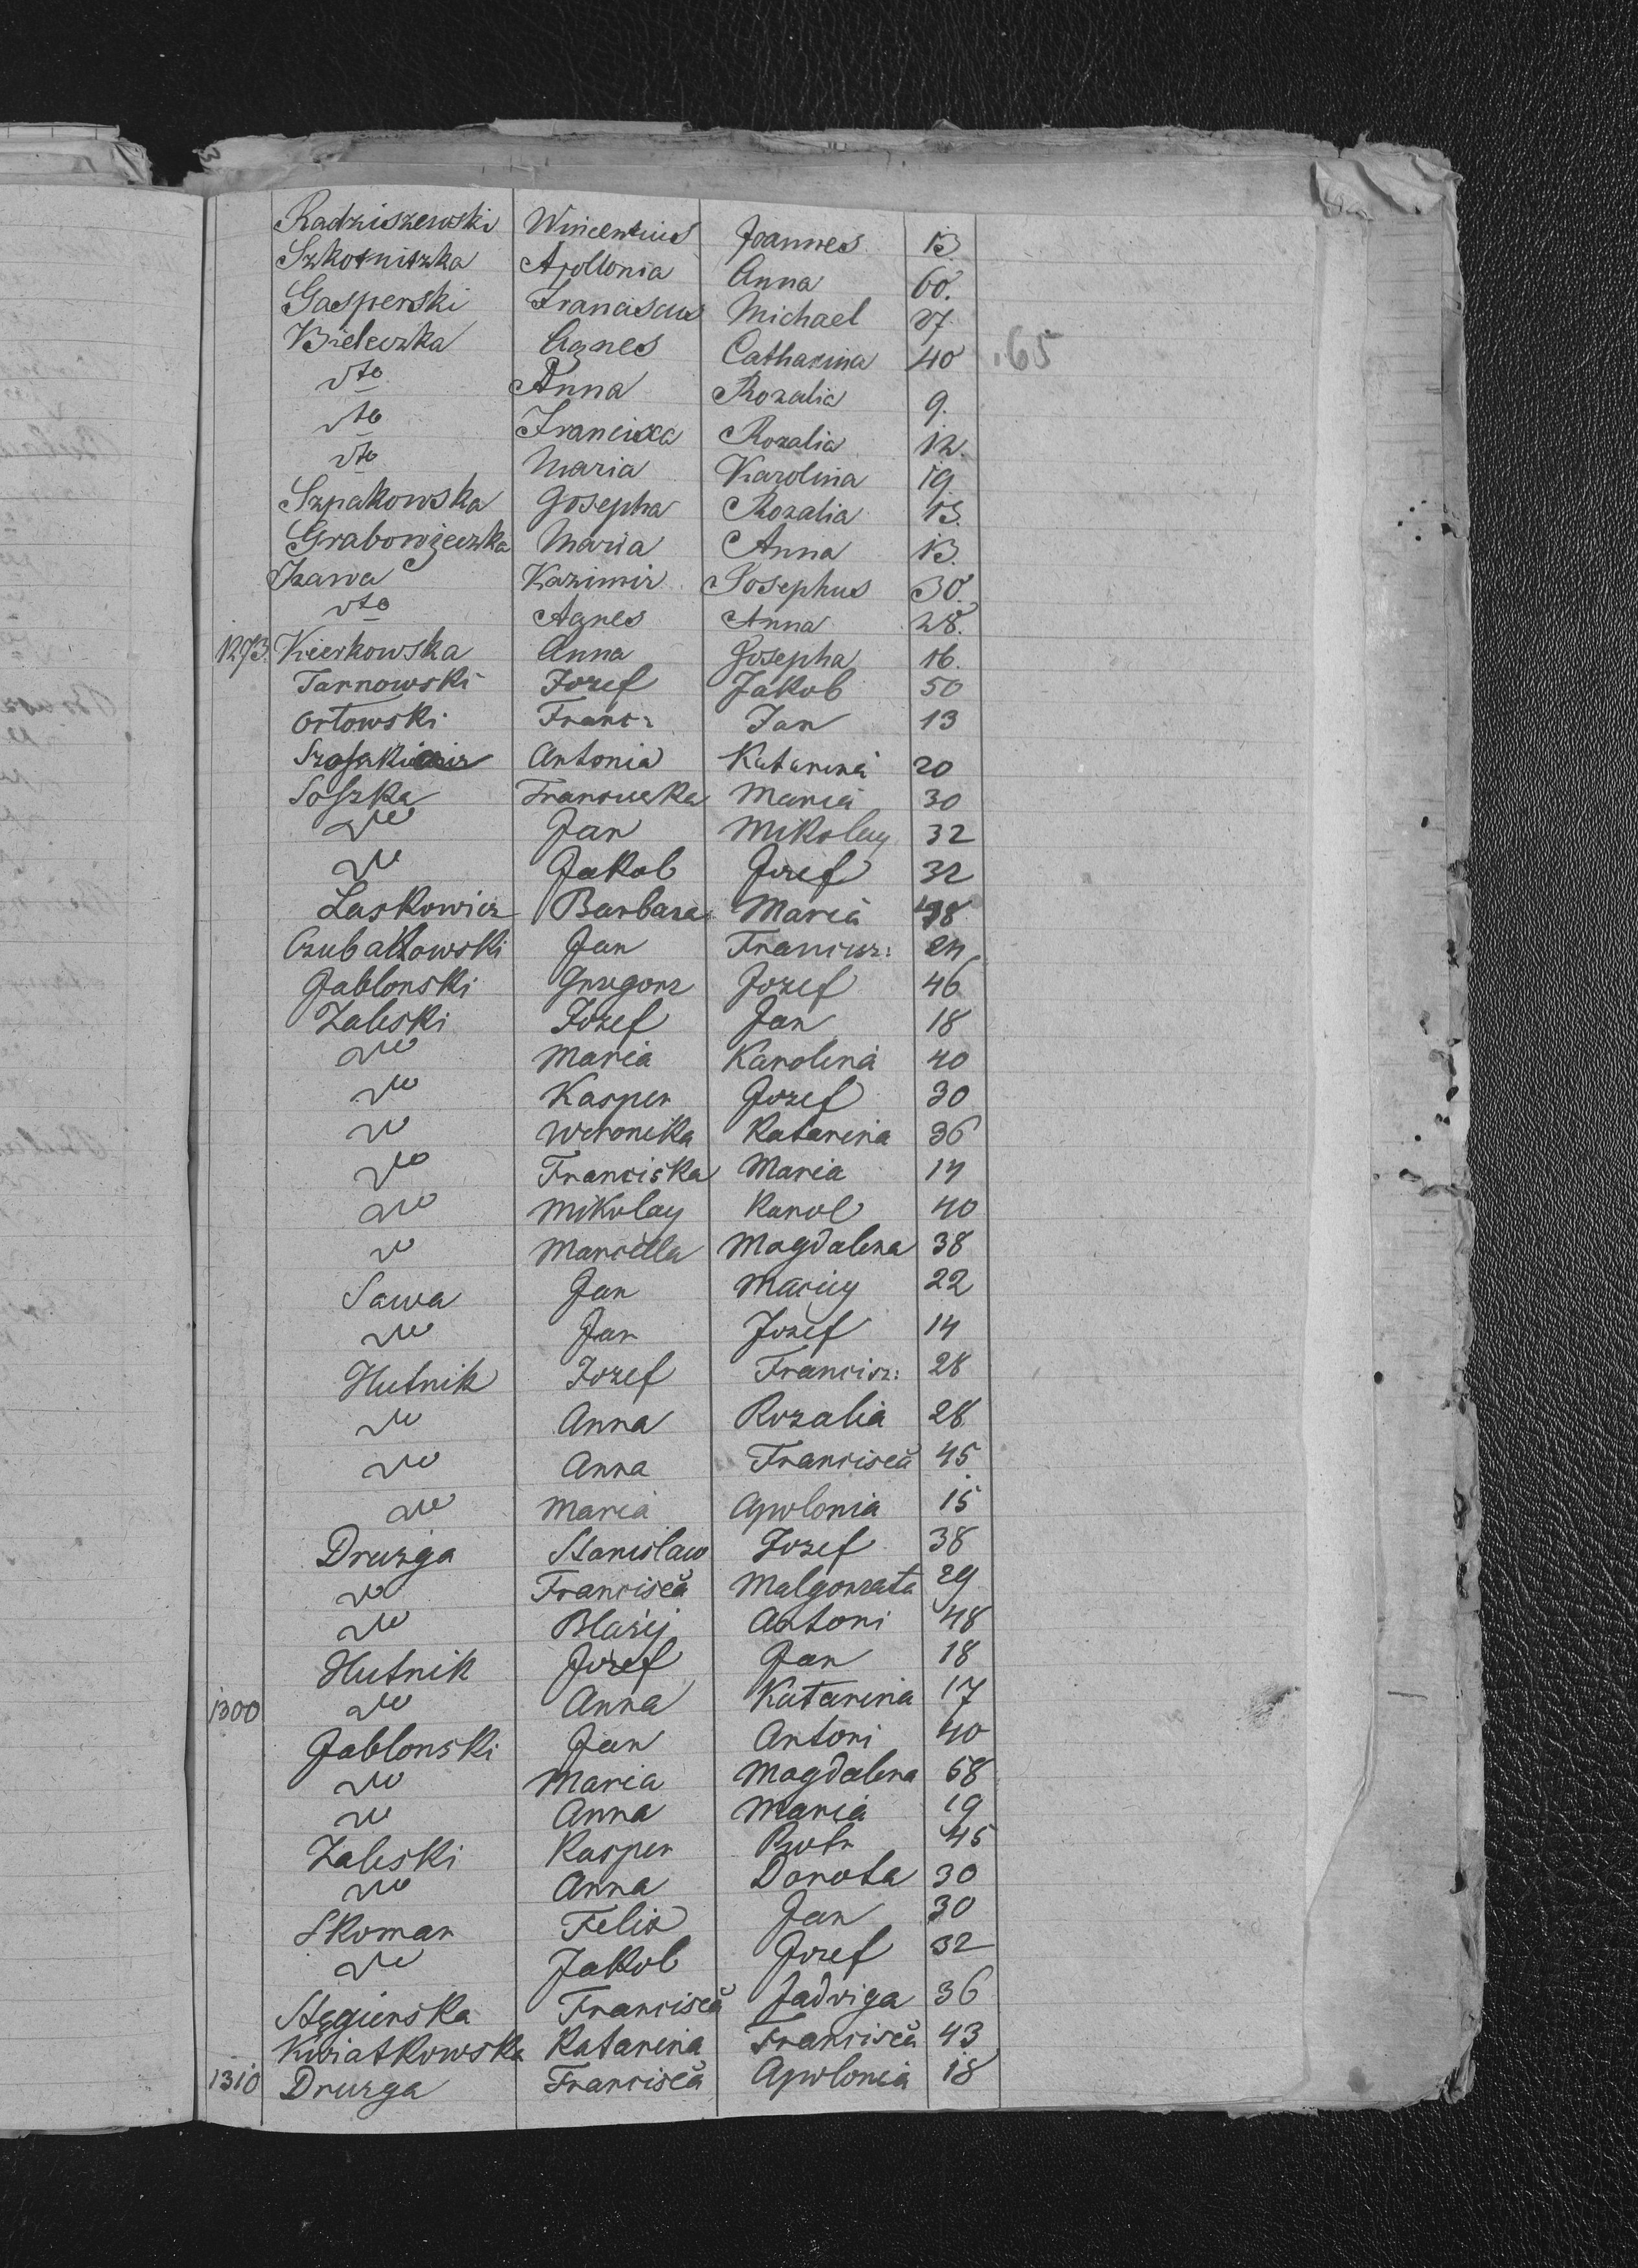 Radziszewski Wincentius Joannes 13.
Szkotniszka Apollonia Anna 60.
Gasperski Franciscus Michael 27.
Bieleczka Agnes Catharina 40 .65
dto Anna Rozalia 9.
dto Francixa Rozalia 12.
dto Maria Karolina 19
Szpakowska Josepha Rozalia 13.
Grabowieczka Maria Anna 13.
Kazimir Josephus 30.
dto Agnes Anna 28.
1273. Kierkowska Anna Josepha 16.
Tarnowski Jozef Jakob 50
Orłowski Franc: Jan 13
Antonia Katarina 20
Soszka Franciszka Maria 30
dto Jan Mikolay 32
dto Jakob Jozef 32
Laskowicz Barbara Maria
Czubakowski Jan Francisz: 24
Jablonski Grzegorz Jozef 46
Zaleski Jozef Jan 18
dto Maria Karolina 40
dto Kasper Jozef 30
dto Weronika Katarina 36
dto Franciska Maria 14
dto Mikolay Karol 40
dto Marcella Magdalena 38
Sawa Jan Maciey 22
dto Jan Jozef 14
Hutnik Jozef Francisz: 28
dto Anna Rozalia 28
dto Anna Franciscă 45
dto Maria Apolonia 15
Druzga Stanislaw Jozef 38
dto Franciscă Malgorzata 29
dto Blazij Antoni 48
Hutnik Jozef Jan 18
1300 dto Anna Katarina 17
Jablonski Jan Antoni 40
dto Maria Magdalena 58
dto Anna Maria 19
Zaleski Kasper Piotr 45
dto Anna Dorota 30
Skoman Felix Jan 30
dto Jakob Jozef 32
Stęgierska Franciscă Jadwiga 36
Kwiatkowska Katarina Franciscă 43
1310 Druzga Franciscă Apolonia 18